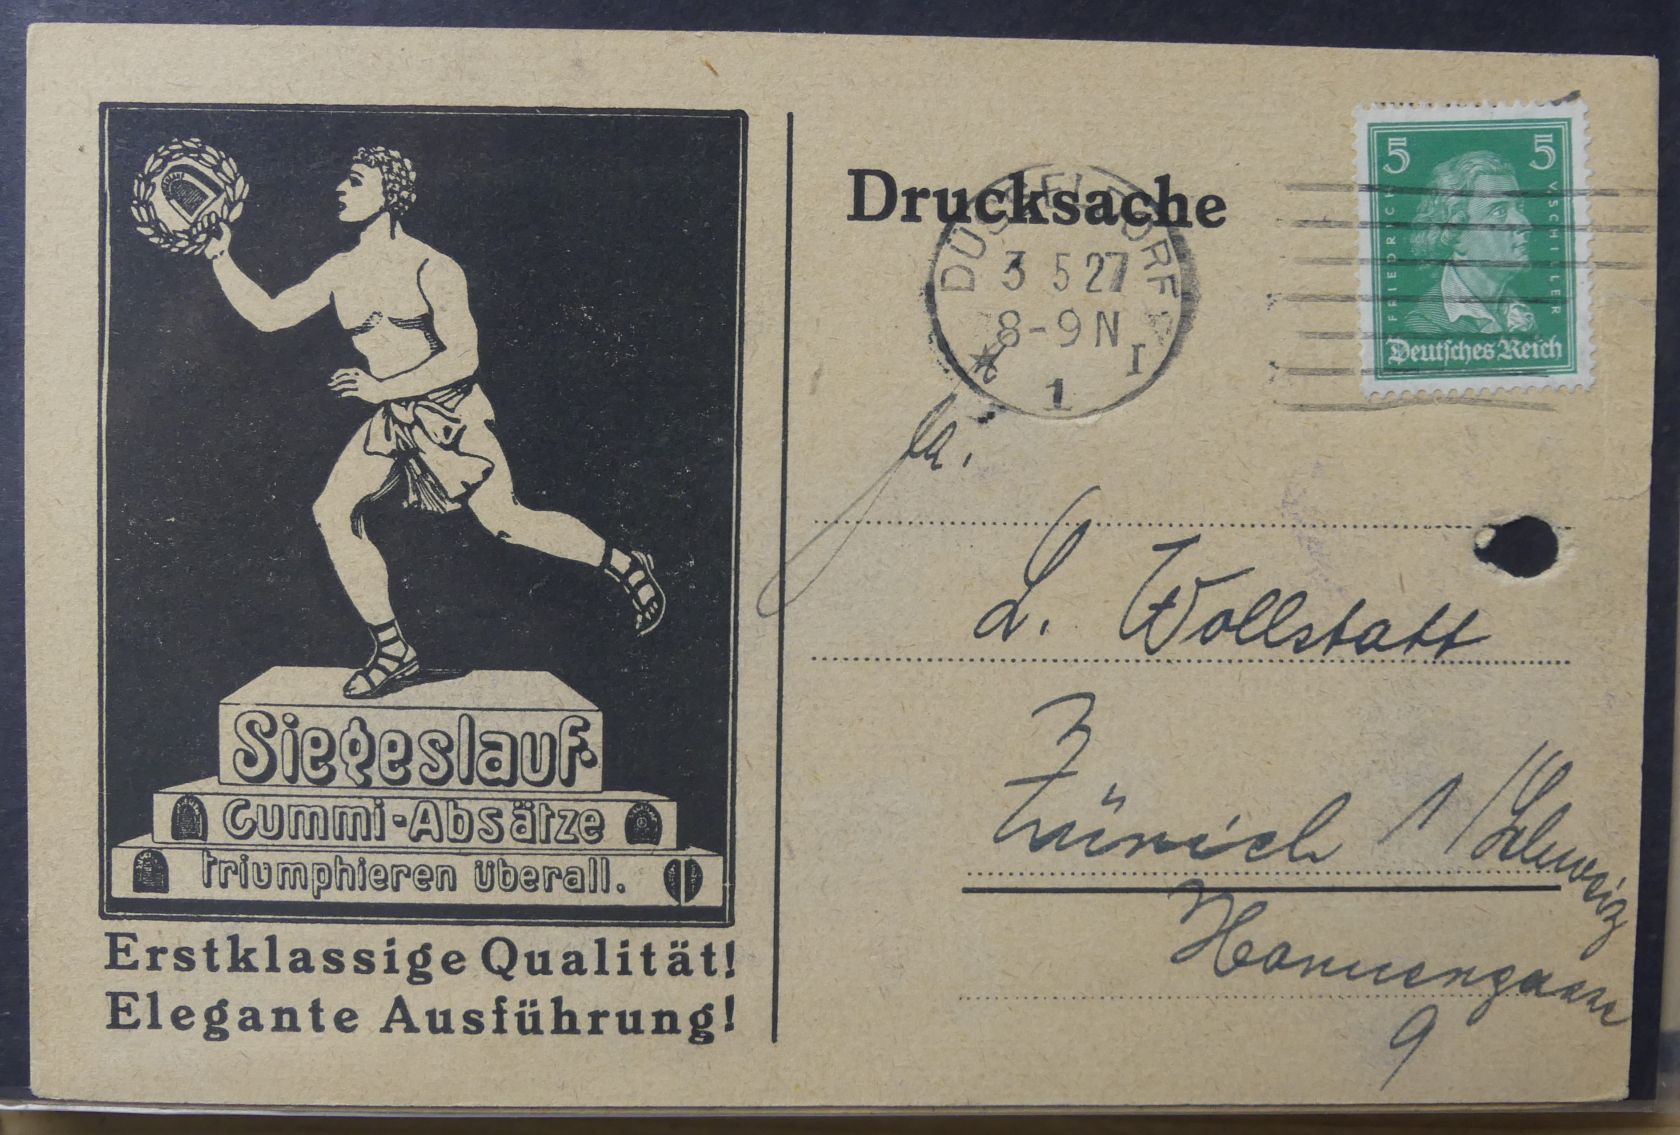 Siegeslauf
Gummi-Absätze
triumphieren überall.
Erstklassige Qualität!
Elegante Ausführung!
Drucksache
DÜSSELDORF
3 5 27
8-9 N
* 1 I
5 5
FRIEDRICH V SCHILLER
Deutsches Reich
Fa.
L. Wollstatt
Zürich 1 / Schweiz
9